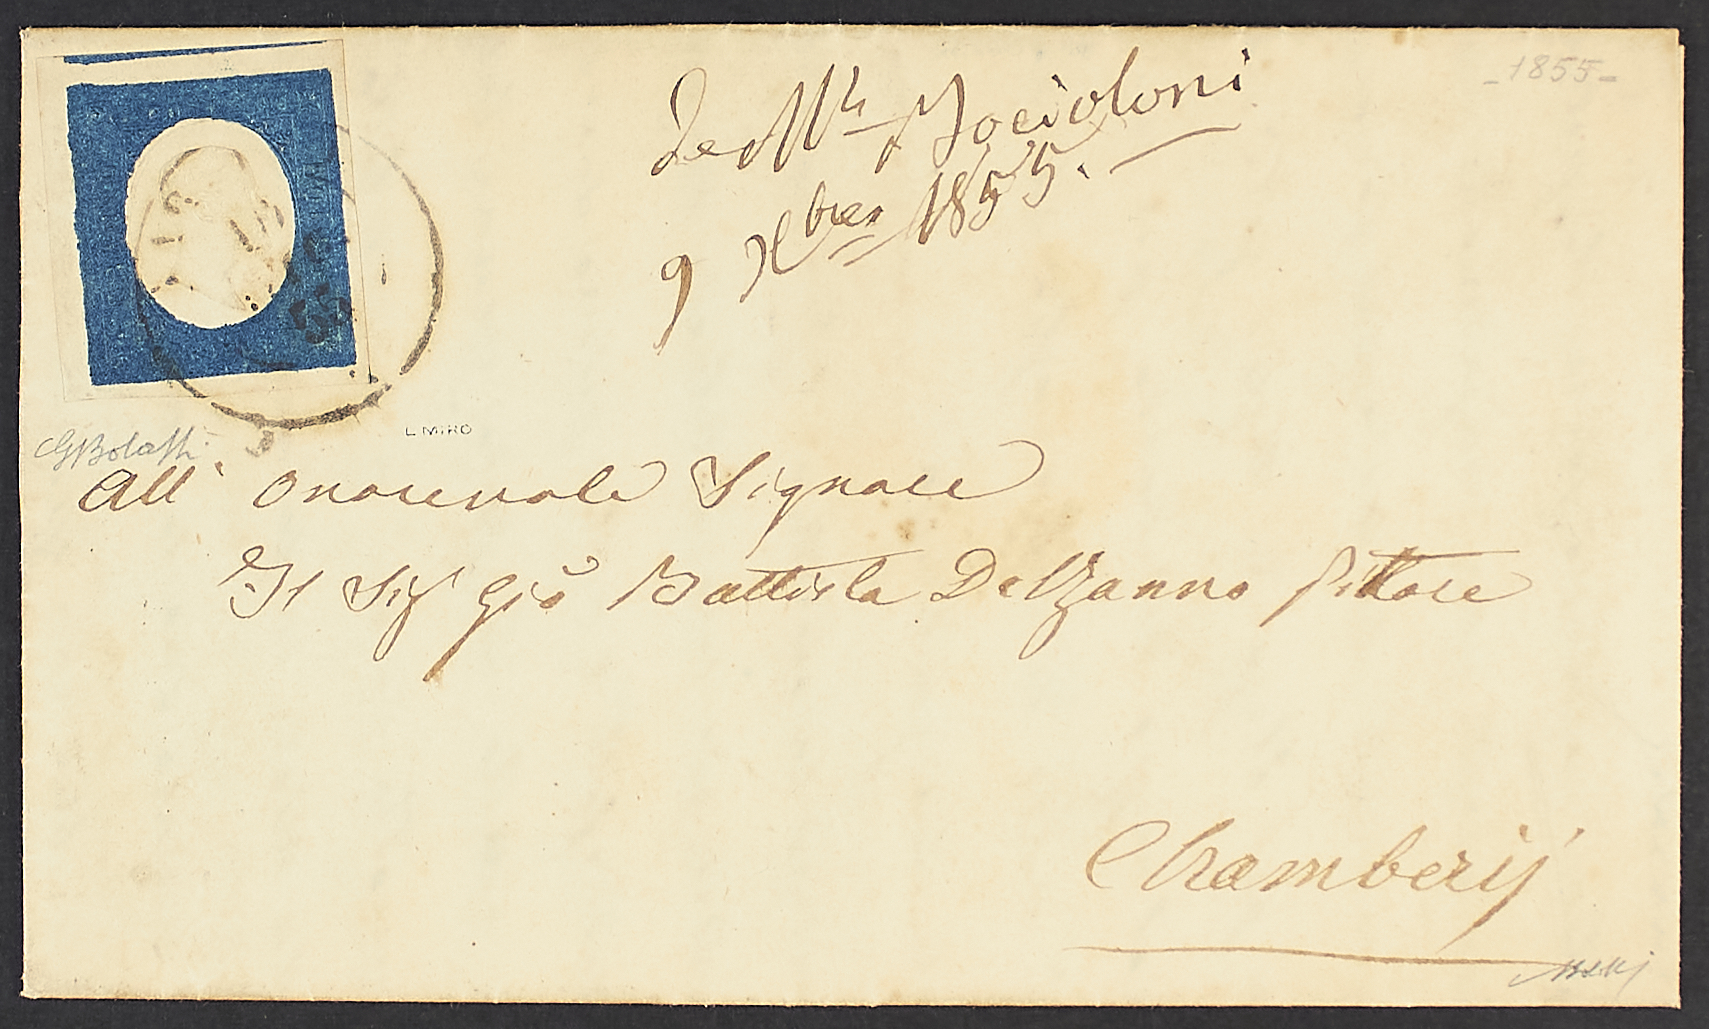 -1855-
De Mr Mocioloni
9 Xbre 1855.
GBolaffi
L. MIRO
All' Onorevole Signore
Il Sig Gio Battista DalZanno Pittore
Chambery